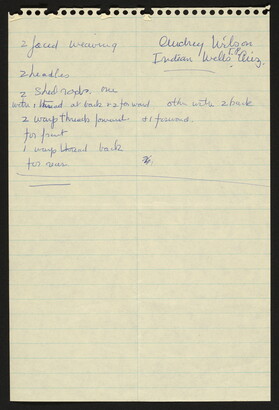 2 faced weaving
Audrey Wilson
Indian Wells, Ariz.
2 headles
2 shed rods. one
with 1 thread at back & 2 forward other with 2 back
2 warp threads forward & 1 forward.
for front
1 warp thread back
for rear